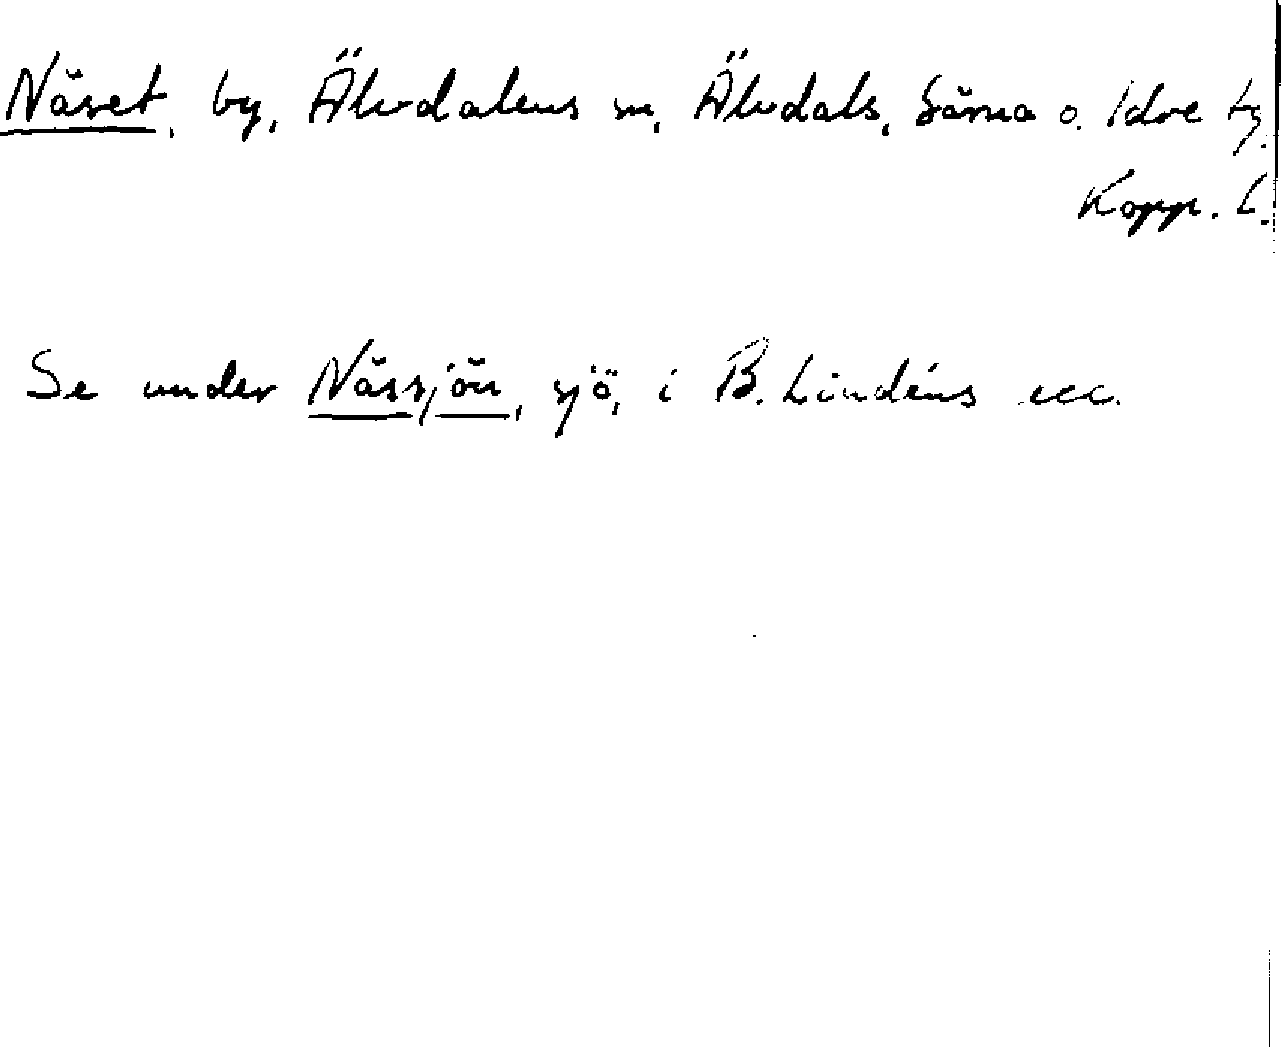 Näset, by, Älvdalens sn, Älvdals, Särna o. Idre tg.
Kopp. l.
Se under Nässjön, sjö, i B. Lindéns exc.